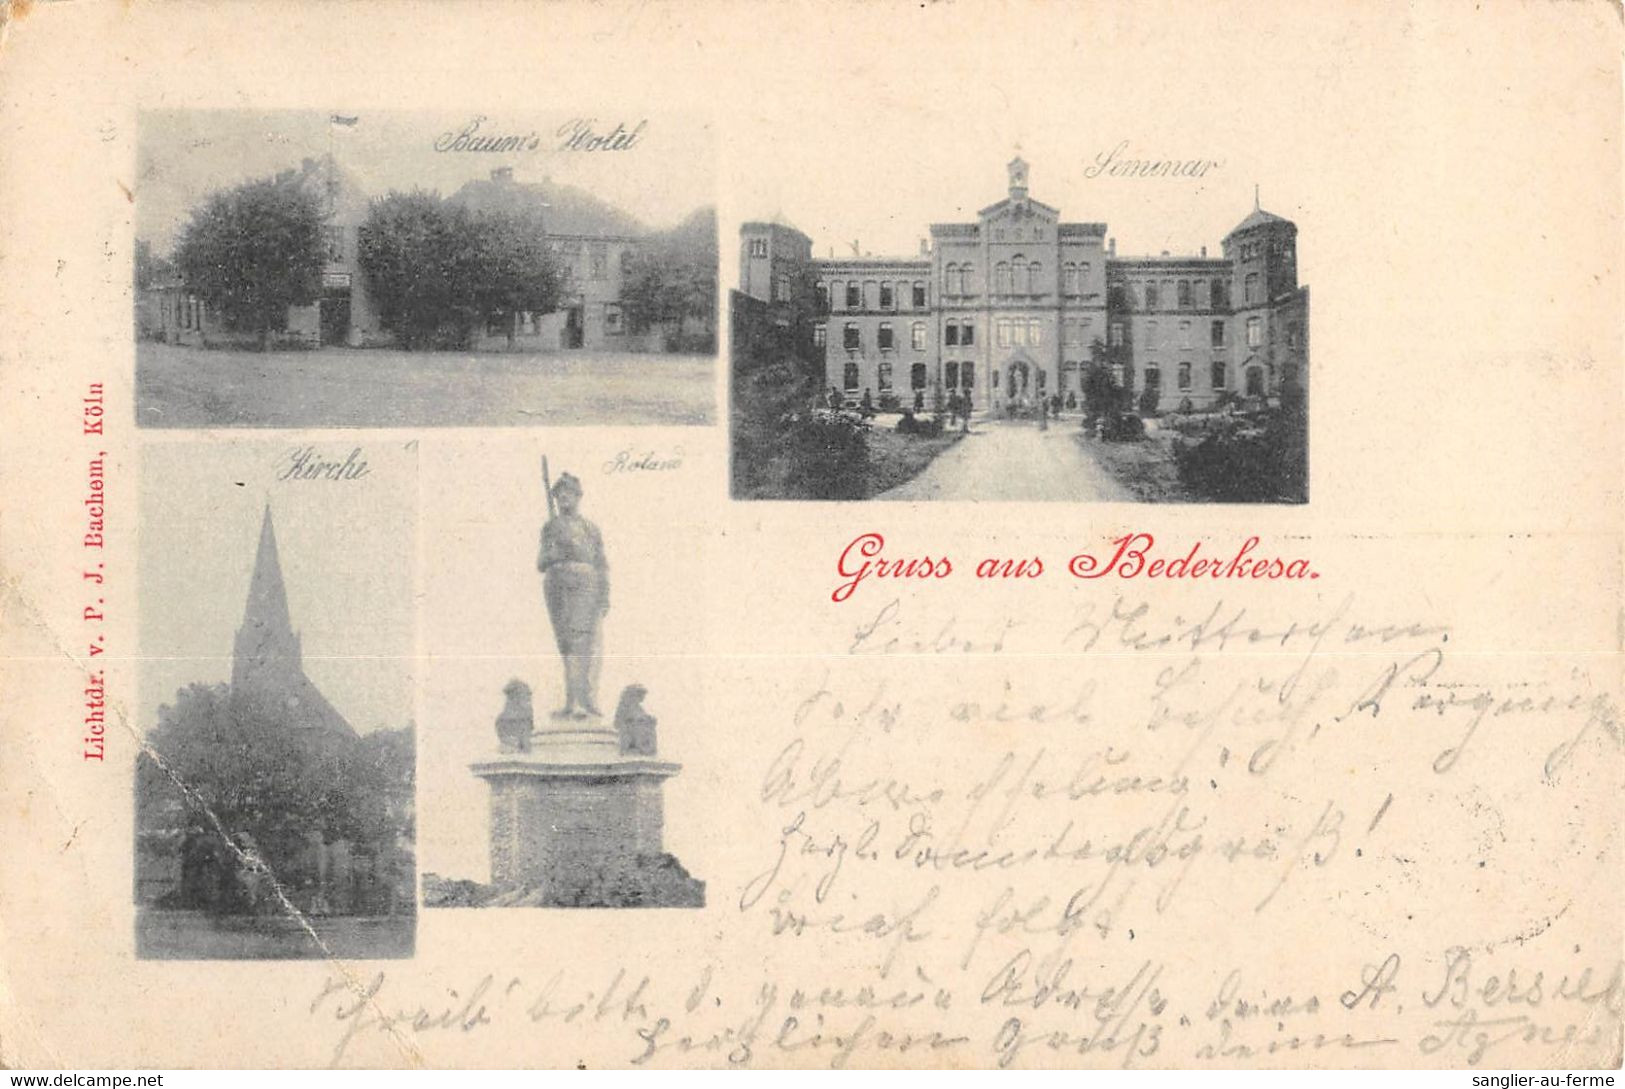 Baum's Hotel
Seminar
Kirche
Roland
Lichtdr. v. P. J. Bachem, Köln
Gruss aus Bederkesa.
Liebes Mütterchen.
Sehr viel Besuch, Vergnüg
Abwechselung!
Herzl. Sonntagsgruß!
Brief folgt.
Schreib' bitte d. genaue Adresse, deine A.
Herzlichen Gruß deine Agnes
sanglier-au-ferme